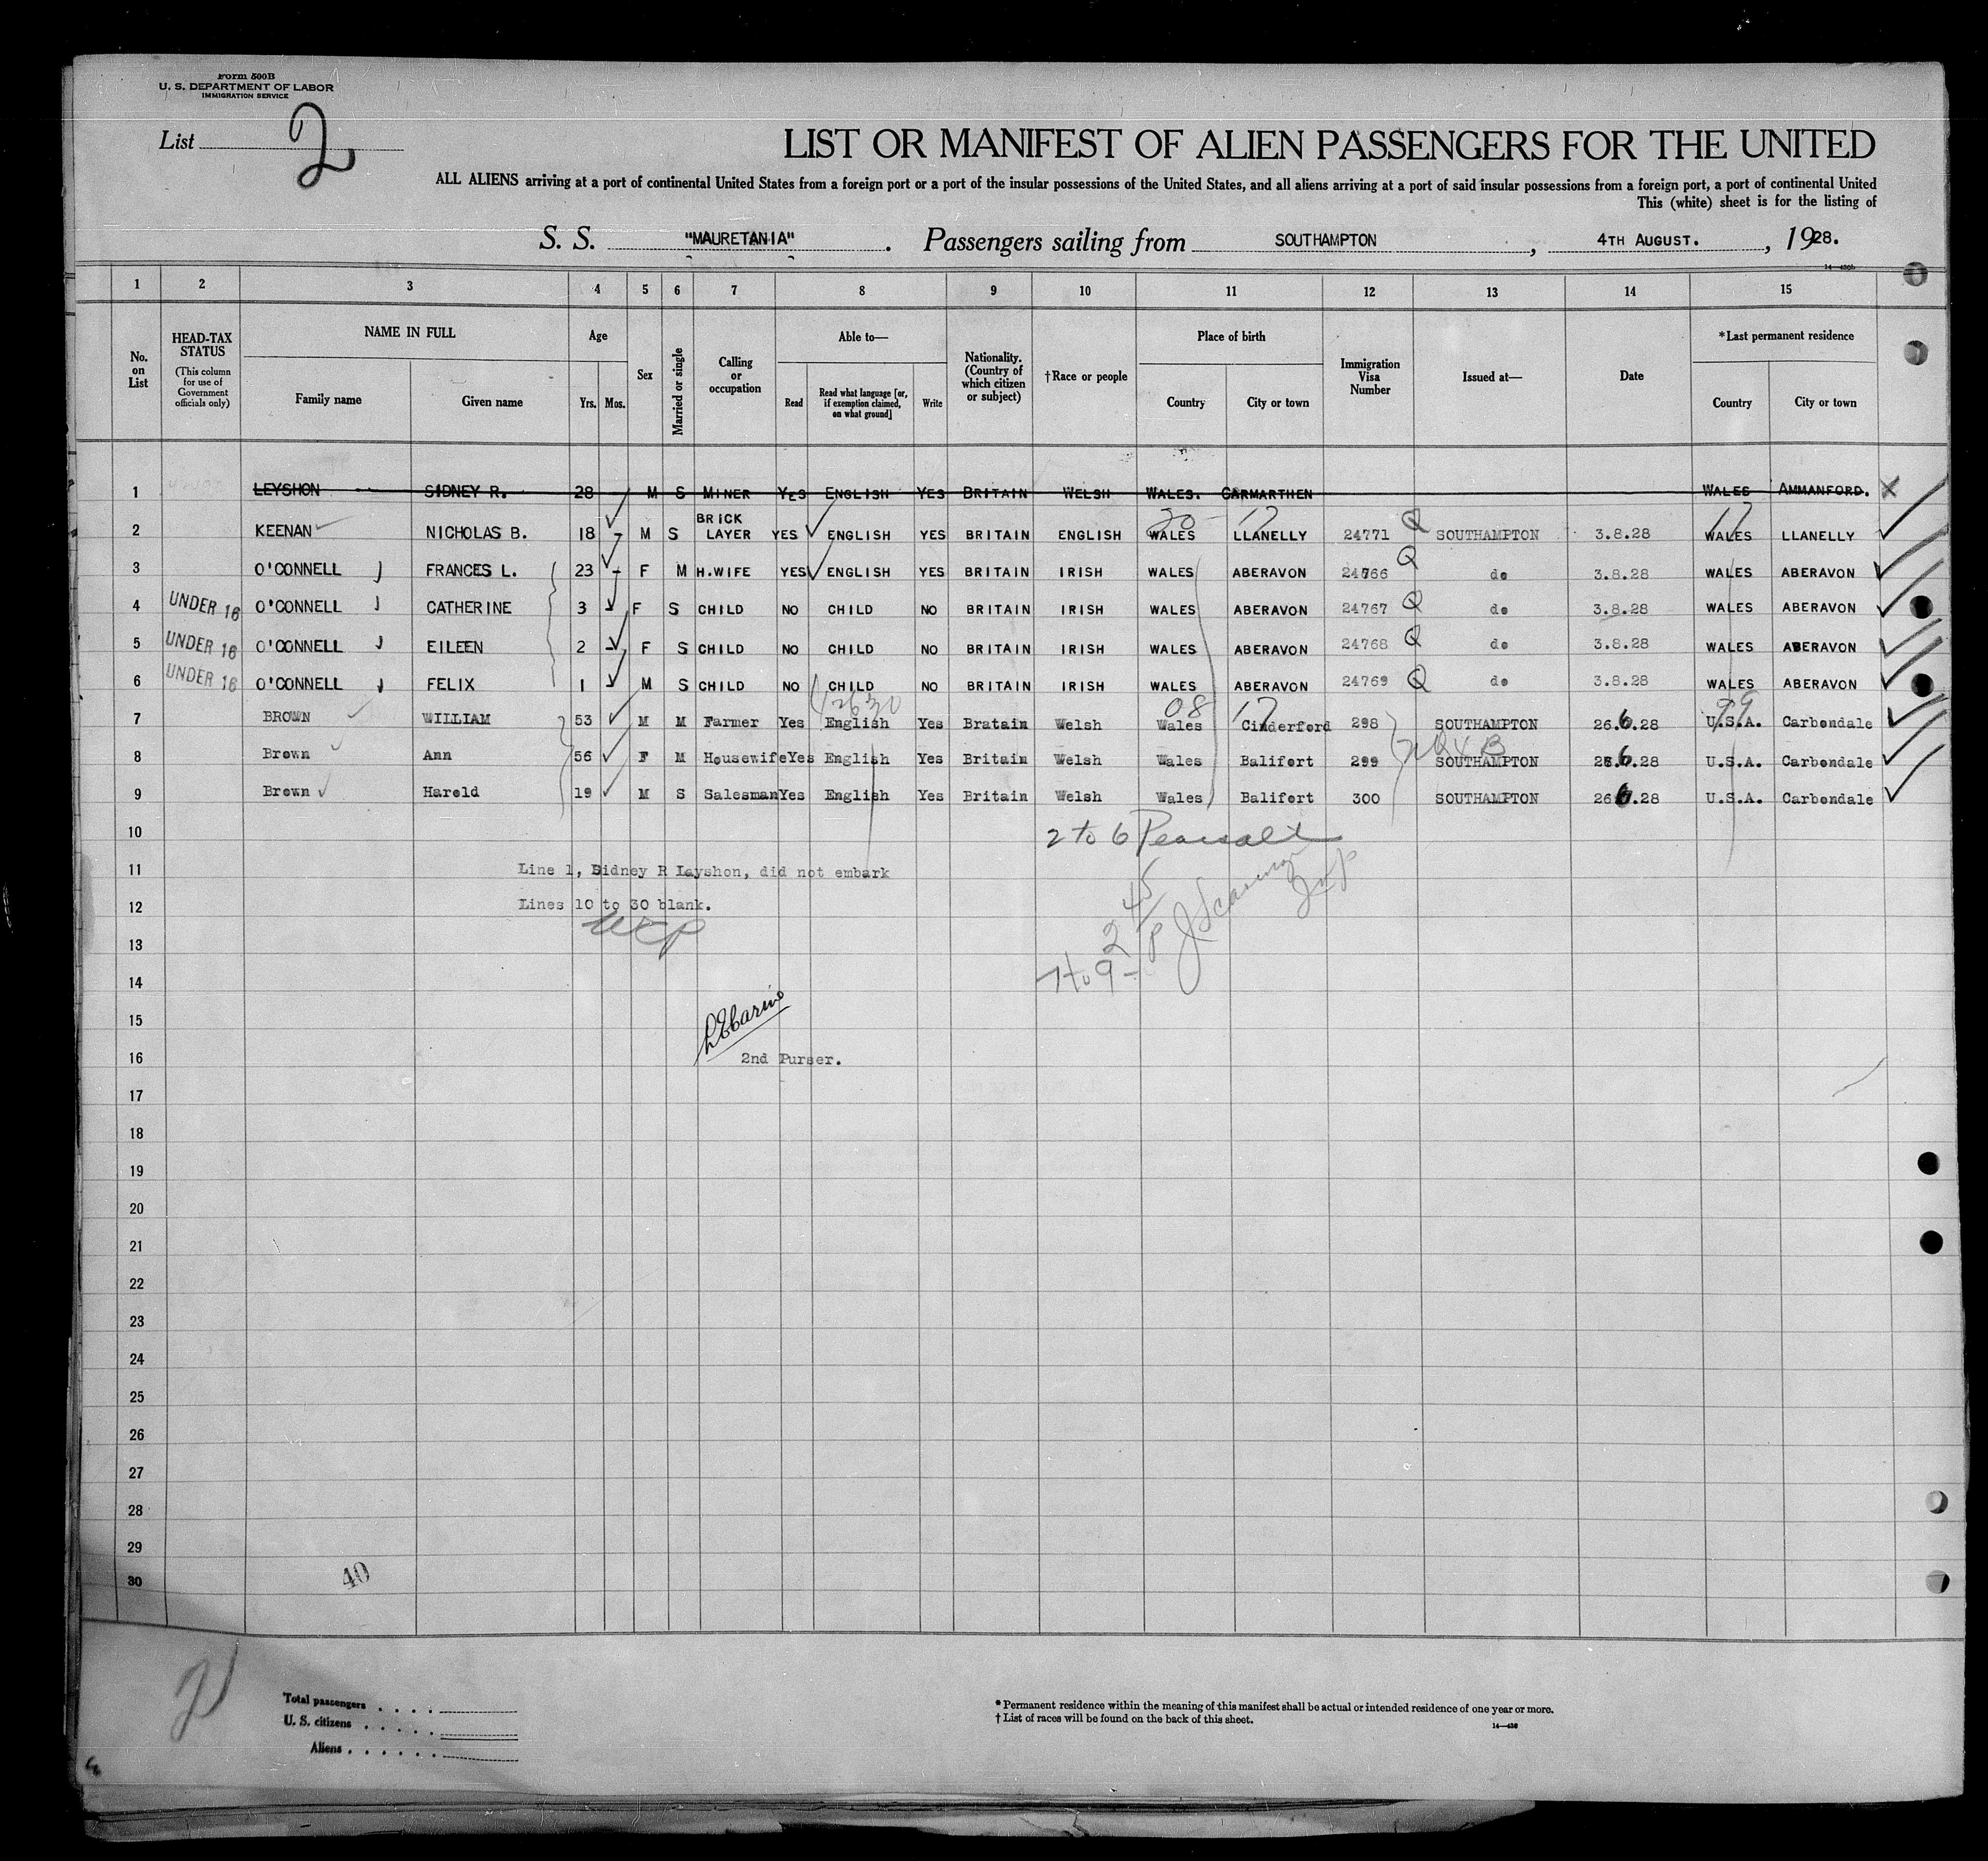 Form 500B
U. S. DEPARTMENT OF LABOR
IMMIGRATION SERVICE
List 2
LIST OR MANIFEST OF ALIEN PASSENGERS FOR THE UNITED
ALL ALIENS arriving at a port of continental United States from a foreign port or a port of the insular possessions of the United States, and all aliens arriving at a port of said insular possessions from a foreign port, a port of continental United
This (white) sheet is for the listing of
S. S. "MAURETANIA". Passengers sailing from SOUTHAMPTON, 4TH AUGUST., 1928.
1 2 3 4 5 6 7 8 9 10 11 12 13 14 15
No. on List
HEAD-TAX STATUS (This column for use of Government officials only)
NAME IN FULL
Family name Given name
Age
Yrs. Mos.
Sex
Married or single
Calling or occupation
Able to—
Read Read what language [or, if exemption claimed, on what ground] Write
Nationality. (Country of which citizen or subject)
†Race or people
Place of birth
Country City or town
Immigration Visa Number
Issued at—
Date
*Last permanent residence
Country City or town
1 LEYSHON SIDNEY R. 28 M S MINER YES ENGLISH YES BRITAIN WELSH WALES. CARMARTHEN WALES AMMANFORD. X
20 17 17
2 KEENAN NICHOLAS B. 18 M S BRICK LAYER YES ENGLISH YES BRITAIN ENGLISH WALES LLANELLY 24771 Q SOUTHAMPTON 3.8.28 WALES LLANELLY
3 O'CONNELL FRANCES L. 23 F M H.WIFE YES ENGLISH YES BRITAIN IRISH WALES ABERAVON 24766 Q do 3.8.28 WALES ABERAVON
4 UNDER 16 O'CONNELL CATHERINE 3 F S CHILD NO CHILD NO BRITAIN IRISH WALES ABERAVON 24767 Q do 3.8.28 WALES ABERAVON
5 UNDER 16 O'CONNELL EILEEN 2 F S CHILD NO CHILD NO BRITAIN IRISH WALES ABERAVON 24768 Q do 3.8.28 WALES ABERAVON
6 UNDER 16 O'CONNELL FELIX 1 M S CHILD NO CHILD NO BRITAIN IRISH WALES ABERAVON 24769 Q do 3.8.28 WALES ABERAVON
08 17 99
7 BROWN WILLIAM 53 M M Farmer Yes English Yes Bratain Welsh Wales Cinderford 298 SOUTHAMPTON 26.6.28 U.S.A. Carbondale
8 Brown Ann 56 F M Housewife Yes English Yes Britain Welsh Wales Balifort 299 SOUTHAMPTON 26.6.28 U.S.A. Carbondale
9 Brown Harold 19 M S Salesman Yes English Yes Britain Welsh Wales Balifort 300 SOUTHAMPTON 26.6.28 U.S.A. Carbondale
10 2 to 6
11 Line 1, Sidney R Layshon, did not embark
12 Lines 10 to 30 blank.
13
14 7 to 9 -
15
16 2nd Purser.
17
18
19
20
21
22
23
24
25
26
27
28
29
30
40
2
Total passengers
U. S. citizens
Aliens
* Permanent residence within the meaning of this manifest shall be actual or intended residence of one year or more.
† List of races will be found on the back of this sheet.